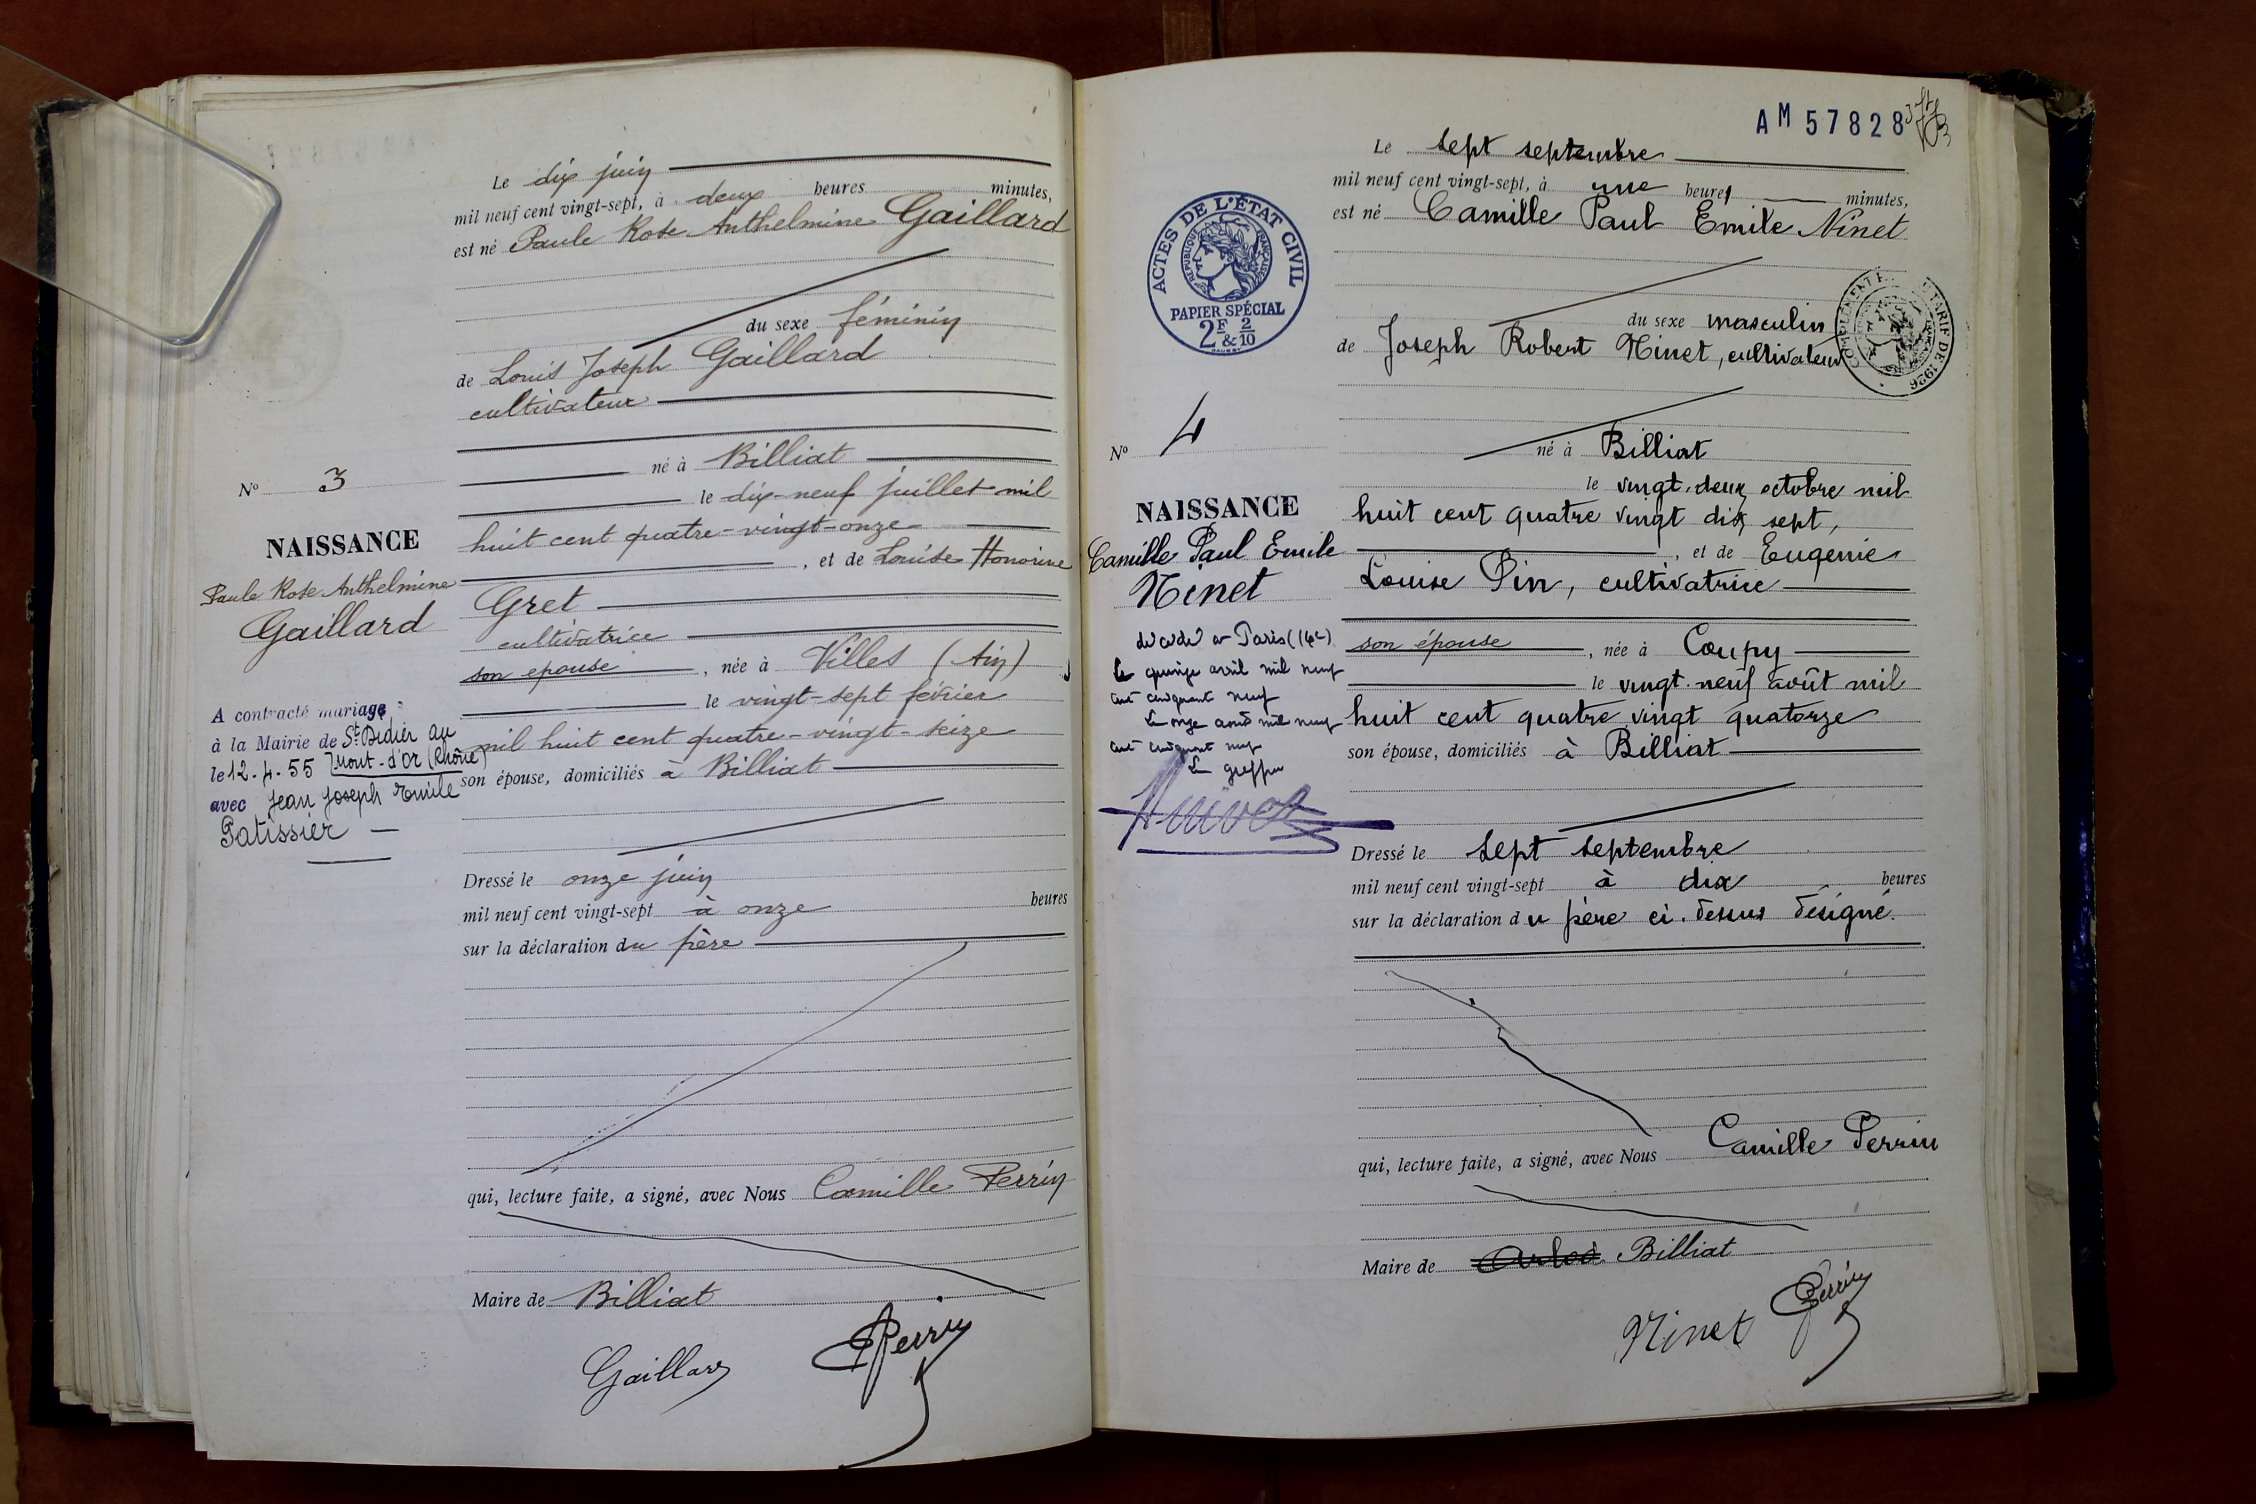 Le dix juin
mil neuf cent vingt-sept, à deux heures minutes,
est né Paule Rose Anthelmine Gaillard
du sexe féminin
de Louis Joseph Gaillard
cultivateur
né à Billiat
le dix-neuf juillet mil
huit cent quatre-vingt-onze
, et de Louise Honorine
Gret
cultivatrice
son épouse, née à Villes (Ain)
le vingt-sept février
mil huit cent quatre-vingt-seize
son épouse, domiciliés à Billiat
Dressé le onze juin
mil neuf cent vingt-sept à onze heures
sur la déclaration du père
qui, lecture faite, a signé, avec Nous Camille Perrin
Maire de Billiat
Gaillard
Perrin
No 3
NAISSANCE
Paule Rose Anthelmine
Gaillard
A contracté mariage
à la Mairie de St Didier au
le 12.4.55 Mont-d'Or (Rhône)
avec Jean Joseph Emile
Patissier
AM 57828
Le sept septembre
mil neuf cent vingt-sept, à une heures minutes,
est né Camille Paul Emile Ninet
du sexe masculin
de Joseph Robert Ninet, cultivateur
né à Billiat
le vingt-deux octobre mil
huit cent quatre vingt dix sept,
, et de Eugenie
Louise Pin, cultivatrice
son épouse, née à Coupy
le vingt-neuf août mil
huit cent quatre vingt quatorze
son épouse, domiciliés à Billiat
Dressé le sept septembre
mil neuf cent vingt-sept à dix heures
sur la déclaration du père ci-dessus désigné.
qui, lecture faite, a signé, avec Nous Camille Perrin
Maire de Billiat
Ninet
Perrin
ACTES DE L'ÉTAT CIVIL
RÉPUBLIQUE FRANÇAISE
PAPIER SPÉCIAL
2F & 2/10
TARIF DE 1926
No 4
NAISSANCE
Camille Paul Emile
Ninet
décédé à Paris (14e)
le quinze avril mil neuf
cent cinquante neuf
Le onze août mil neuf
cent cinquante neuf
Le greffier